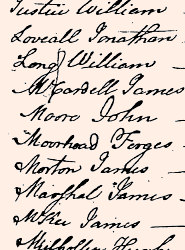 Justice William
Loveall Jonathan
Long William
McCardell James
Moore John
Moorhead Ferges
Morton James
Marshal James
McKee James
Mulholland